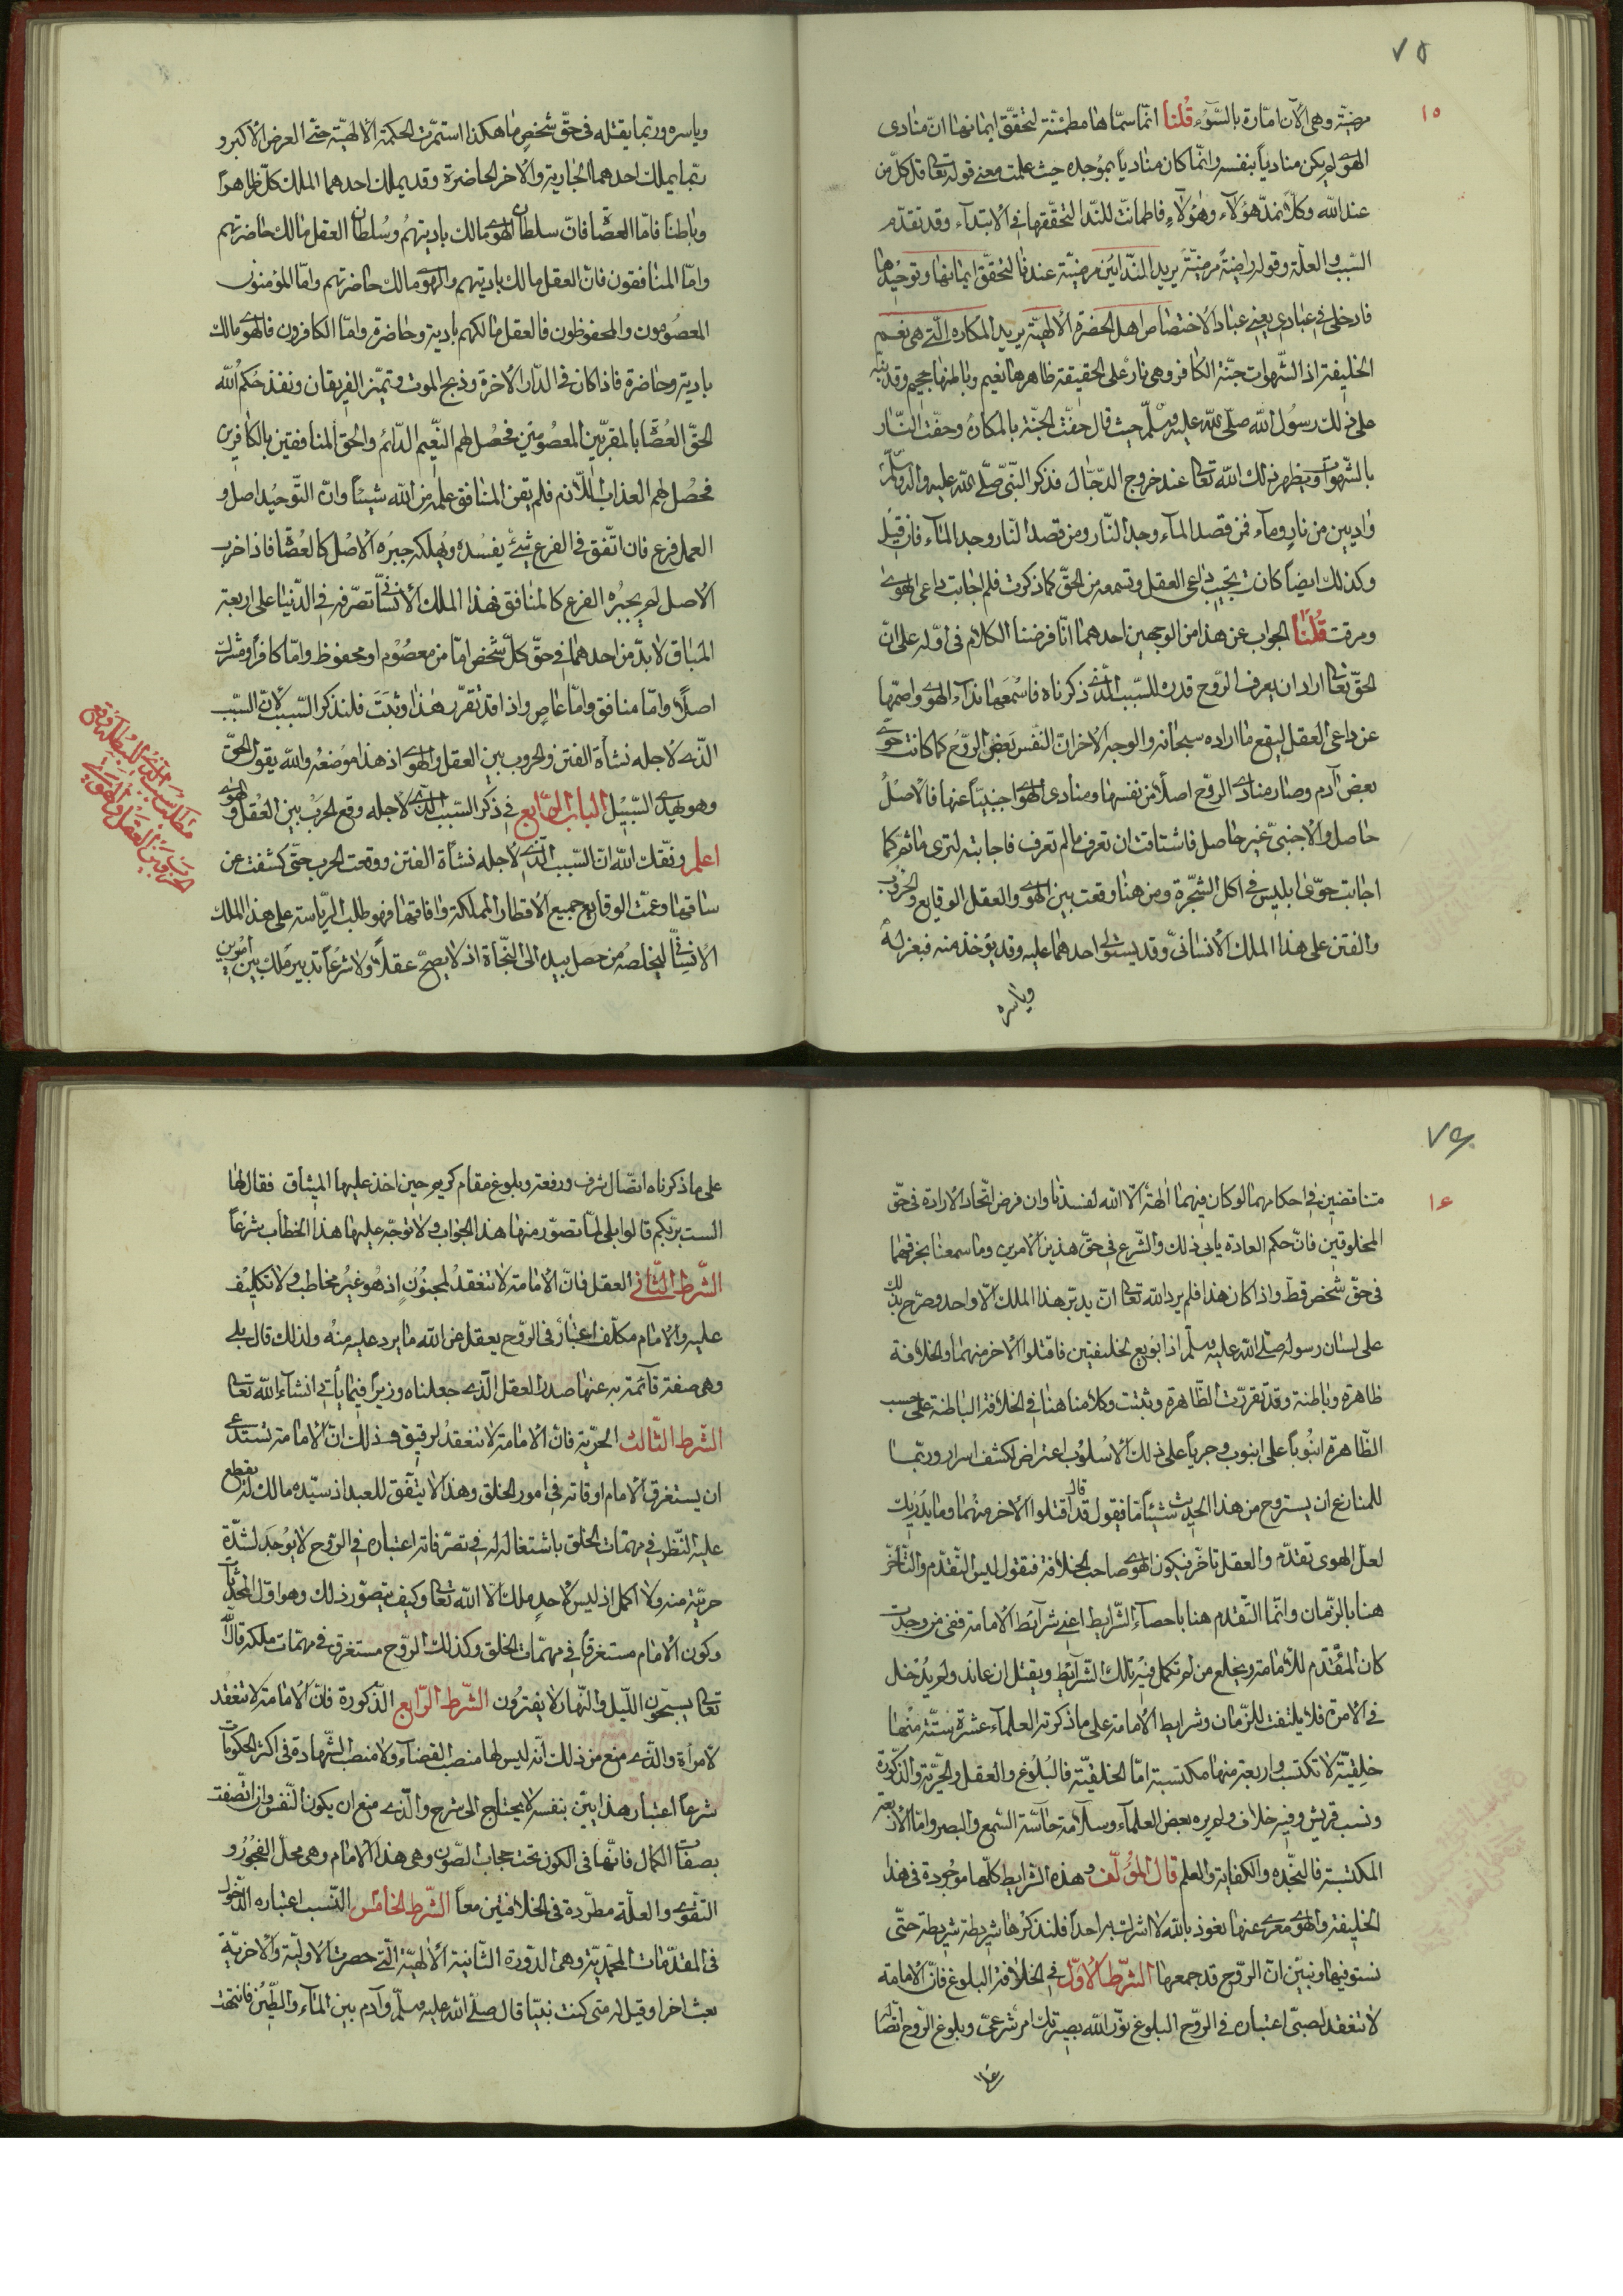 ٧٥
١٥
مرضيّة وهى الآن امّارة بالسّوء قُلنا انّما سمّاها مطمئنّة لتحقّق ايمانها انّ منادى
الهوى لم يكن منادياً بنفسه وانّما كان منادياً بموجده حيث علمت معنى قوله تعالى قل كلّ من
عند الله وكلاّ نمدّ هؤلاء وهؤلاء فاطمأنت للندا لتحقّقها فى الابتداء وقد تقدّم
السّبب والعلّة وقوله راضية مرضيّة يريد الندائين مرضيّة عندنا لتحقّق ايمانها وتوحيدها
فادخلى فى عبادى يعنى عباد الاختصاص اهل الحضرة الالهيّة يريد المكاره الّتى هى نعيم
الخليفة اذ الشّهوات جنّة الكافر وهى نار على الحقيقة ظاهرها نعيم وباطنها جحيم وقد نبّه
على ذلك رسول الله صلّى الله عليه وسلّم حيث قال حفّت الجنّة بالمكاره وحفّت النّار
بالشّهوات ويظهر ذلك الله تعالى عند خروج الدّجّال فذكر النّبىّ صلّى الله عليه وآله وسلّم
واديين من نار وماء فمن قصد الماء وجد النّار ومن قصد النّار وجد الماء فان قيل
وكذلك ايضاً كانت تجيب داعى العقل وتسمعه من الحقّ كما ذكرت فلم اجابت داعى الهوى
ومرقت قُلنا الجواب عن هذا من الوجهين احدهما انّا فرضنا الكلام فى اوّله على انّ
الحقّ تعالى اراد ان يعرف الرّوح قدره للسّبب الّذى ذكرناه فاسمعها نداء الهوى واصمّها
عن داعى العقل ليقع ما اراده سبحانه والوجه الاخر انّ النّفس بعض الرّوح كما كانت حوّى
بعض آدم وصار منادى الرّوح اصلاً من نفسها ومنادى الهوى اجنبيّاً عنها فالاصل
حاصل والاجنبىّ غير حاصل فاشتاقت ان تعرف ما لم تعرف فاجابته لترى ما ثمّ كما
اجابت حوّى ابليس فى اكل الشّجرة ومن هنا وقعت بين الهوى والعقل الوقايع والحروب
والفتن على هذا الملك الانسانىّ وقد يستولى احدهما عليه وقد يؤخذ منه فيعزله
وياسره
وياسره وربّما يقتله فى حقّ شخص ما هكذا استمرّت الحكمة الالهيّة حتّى العرض الاكبر و
ربّما يملك احدهما الجارية والآخر الحاضرة وقد يملك احدهما الملك كلّه ظاهراً
وباطناً فامّا العصاة فانّ سلطان الهوى مالك باديتهم وسلطان العقل مالك حاضرتهم
وامّا المنافقون فانّ العقل مالك باديتهم والهوى مالك حاضرتهم وامّا المؤمنون
المعصومون والمحفوظون فالعقل مالكهم بادية وحاضرة وامّا الكافرون فالهوى مالك
بادية وحاضرة فاذا كان فى الدّار الاخرة وذبح الموت وتميّز الفريقان ونفذ حكم الله
الحقّ العصاة بالمقرّبين المعصومين فحصل لهم النّعيم الدّائم والحق المنافقين بالكافرين
فحصل لهم العذاب اللازم فلم يغن المنافق علمه من الله شيئاً وانّ التّوحيد اصل و
العمل فرع فان اتّفق فى الفرع شئ يفسده ويهلكه جبره الاصل كالعصاة فاذا خرب
الاصل لم يجبره الفرع كالمنافق فهذا الملك الانسانىّ تصرّفه فى الدّنيا على اربعة
المثاق لابدّ من احدهما فى حقّ كلّ شخص امّا من معصوم او محفوظ وامّا كافراً ومشرك
اصلاً وامّا منافق وامّا عاصٍ واذا قد تقرّر هذا وثبت فلنذكر السّبب لانّ السّبب
الّذى لاجله نشأة الفتن والحروب بين العقل والهوى اذ هذا موضعه والله يقول الحقّ
وهو يهدى السّبيل الباب الرّابع فى ذكر السّبب الّذى لاجله وقع الحرب بين العقل والهوى
اعلم وفّقك الله انّ السّبب الّذى لاجله نشاة الفتن ووقعت الحرب حتّى كشفت عن
ساقها وعمّت الوقايع جميع الاقطار المملكة وافاقها فهو طلب الرّياسة على هذا الملك
الانسانىّ ليخلّصه من حصل بيده الى النّجاة اذ لا يصحّ عقلاً ولا شرعاً تدبير ملك بين اميرين
مطلب سبب الّذى لاجله وقع
الحرب بين العقل والهوى
٧٦
١٦
متناقضين فى احكامهما لو كان فيهما الهة الّا الله لفسدتا وان فرض اتّحاد الارادة فى حقّ
المخلوقين فانّ حكم العادة يابى ذلك والشّرع فى حقّ هذين الامرين وما سمعنا بخرقهما
فى حقّ شخص قطّ واذا كان هذا فلم يرد الله تعالى ان يدبّر هذا الملك الّا واحد وصرّح بذلك
على لسان رسوله صلّى الله عليه وسلّم اذا بويع لخليفتين فاقتلوا الاخر منهما والخلافة
ظاهرة وباطنة وقد تقرّرت الظّاهرة وثبتت وكلامنا هنا فى الخلافة الباطنة على حسب
الظّاهرة انبوباً على انبوب وجرياً على ذلك الاسلوب اعتراض لكشف اسرار وربّما
للمنازع ان يستروح من هذا الحديث شيئاً ما فيقول قد قال اقتلوا الاخر منهما وما يدريك
لعلّ الهوى تقدّم والعقل تاخّر فيكون الهوى صاحب الخلافة فنقول ليس التّقدّم والتّاخّر
هنا بالزّمان وانّما التّقدم هنا باحصاء الشّرايط اعنى شرائط الامامة ففى من وجدت
كان المقدّم للامامة ويخلع من لم تكمل فيه تلك الشّرائط ويقتل ان عاند ولم يدخل
فى الامرة فلا يلتفت للزّمان وشرايط الامامة على ما ذكرته العلماء عشرة ستّة منها
خلقيّة لا تكتسب واربعة منها مكتسبة امّا الخلقيّة فالبلوغ والعقل والحرّية والذّكورة
ونسب قريش وفيه خلاف ولم يره بعض العلماء وسلامة حاسّة السّمع والبصر وامّا الاربعة
المكتسبة فالنّجدة والكفاية والعلم قال المؤلّف وهذه الشرايط كلّها موجودة فى هذا
الخليفة والهوى معرى عنها نعوذ بالله لا اشرك به احداً فلنذكرها شريطة شريطة حتّى
نستوفيها ونبيّن انّ الرّوح قد جمعها الشّرط الاوّل فى الخلافة البلوغ فانّ الامامة
لا تنعقد لصبىّ اعتباره فى الرّوح البلوغ نوّر الله بصيرتك امر شرعىّ وبلوغ الرّوح اتّصا
على
على ما ذكرناه اتّصال شرف ورفعة وبلوغ مقام كريم حين اخذ عليها الميثاق فقال لها
الست بربّكم قالوا بلى لما تصوّر منها هذا الجواب ولا توجّه عليها هذا الخطاب شرعاً
الشّرط الثّانى العقل فانّ الامامة لا تنعقد لمجنون اذ هو غير مخاطب ولا تكليف
عليه والامام مكلّف اعتباره فى الرّوح يعقل عن الله ما يرد عليه منه ولذلك قال بلى
وهى صفة قآئمة به عنها صدر العقل الّذى جعلناه وزيراً فيما يأتى انشآء الله تعالى
الشّرط الثّالث الحرّية فانّ الامامة لا تنعقد لرقيق وذلك انّ الامامة تستدعى
ان يستغرق الامام اوقاته فى امور الخلق وهذا لا يتّفق للعبد اذ سيّده مالك له يقطع
عليه النّظر فى مهمّات الخلق باشتغاله له فى تصرّفاته اعتباره فى الرّوح لا يوجد لشدّة
حرّية منه ولا اكمل اذ ليس لاحدٍ ملك الّا الله تعالى وكيف يتصوّر ذلك وهو اوّل المحدثات
وكون الامام مستغرقاً فى مهمّات الخلق وكذلك الرّوح مستغرق فى مهمّات ملكه قال الله
تعالى يسبّحون اللّيل والنّهار لا يفترون الشّرط الرّابع الذّكورة فانّ الامامة لا تنعقد
لامرأة والّذى منع من ذلك انّه ليس لها منصب القضاء ولا منصب الشّهادة فى اكثر الحكومات
شرعاً اعتبار هذا بيّن بنفسه لا يحتاج الى شرح والّذى منع ان يكون النّفس وان اتّصفت
بصفات الكمال فانّها فى الكون تحت حجاب الصّون وهى هذا الامام وهى محلّ الفجور و
التّقوى والعلّة مطّردة فى الخلافتين معاً الشّرط الخامس النّسب اعتباره الدّخول
فى المقدّمات المحمّديّة وهى الدّورة الثّانية الالهيّة الّتى حصرت الاوليّة والاخريّة
بعث اخرا وقيل له متى كنت نبيّا قال صلّى الله عليه وسلّم وآدم بين الماء والطّين فانتهت